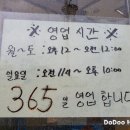 ※영업시간※
월~토: 오전12~오전12:00
일요일: 오전11시~오후10:00
365일 영업합니다
DoDoo H